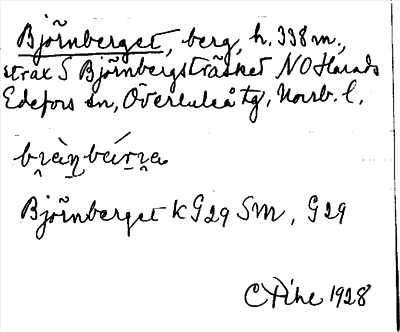 Björnberget, berg, h. 338 m.,
strax S Björnbergsträsket NO Harads
Edefors sn, Överluleå tg, Norrb. l.
Björnberget K G29 SM, G29
1928